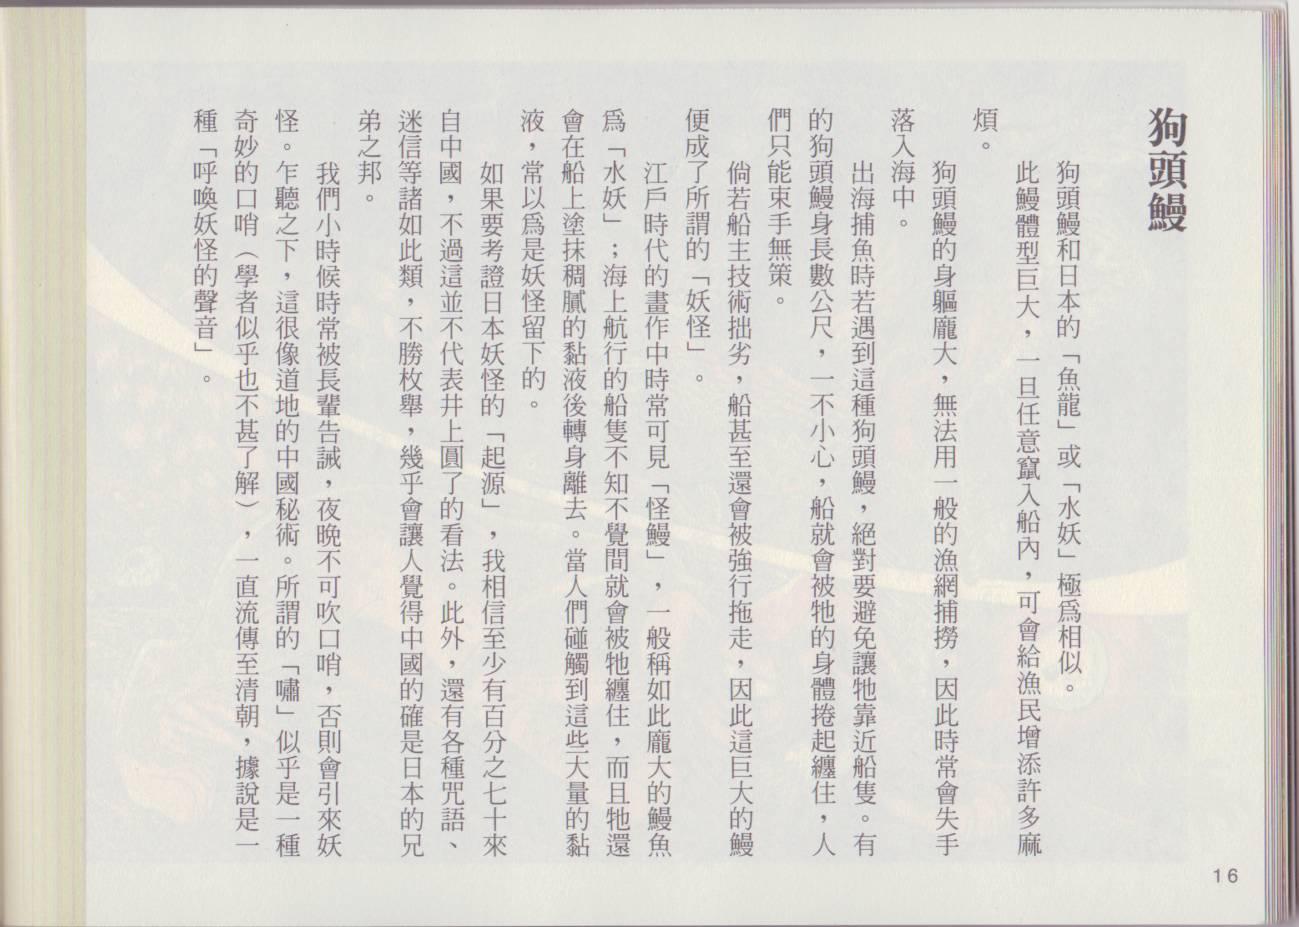 狗頭鰻
狗頭鰻和日本的「魚龍」或「水妖」極爲相似。
此鰻體型巨大，一旦任意竄入船內，可會給漁民增添許多麻
煩。
狗頭鰻的身軀龐大，無法用一般的漁網捕撈，因此時常會失手
落入海中。
出海捕魚時若遇到這種狗頭鰻，絕對要避免讓牠靠近船隻。有
的狗頭鰻身長數公尺，一不小心，船就會被牠的身體捲起纏住，人
們只能束手無策。
倘若船主技術拙劣，船甚至還會被強行拖走，因此這巨大的鰻
便成了所謂的「妖怪」。
江戶時代的畫作中時常可見「怪鰻」，一般稱如此龐大的鰻魚
爲「水妖」；海上航行的船隻不知不覺間就會被牠纏住，而且牠還
會在船上塗抹稠膩的黏液後轉身離去。當人們碰觸到這些大量的黏
液，常以爲是妖怪留下的。
如果要考證日本妖怪的「起源」，我相信至少有百分之七十來
自中國，不過這並不代表井上圓了的看法。此外，還有各種咒語、
迷信等諸如此類，不勝枚舉，幾乎會讓人覺得中國的確是日本的兄
弟之邦。
我們小時候時常被長輩告誡，夜晚不可吹口哨，否則會引來妖
怪。乍聽之下，這很像道地的中國秘術。所謂的「嘯」似乎是一種
奇妙的口哨（學者似乎也不甚了解），一直流傳至清朝，據說是一
種「呼喚妖怪的聲音」。
16